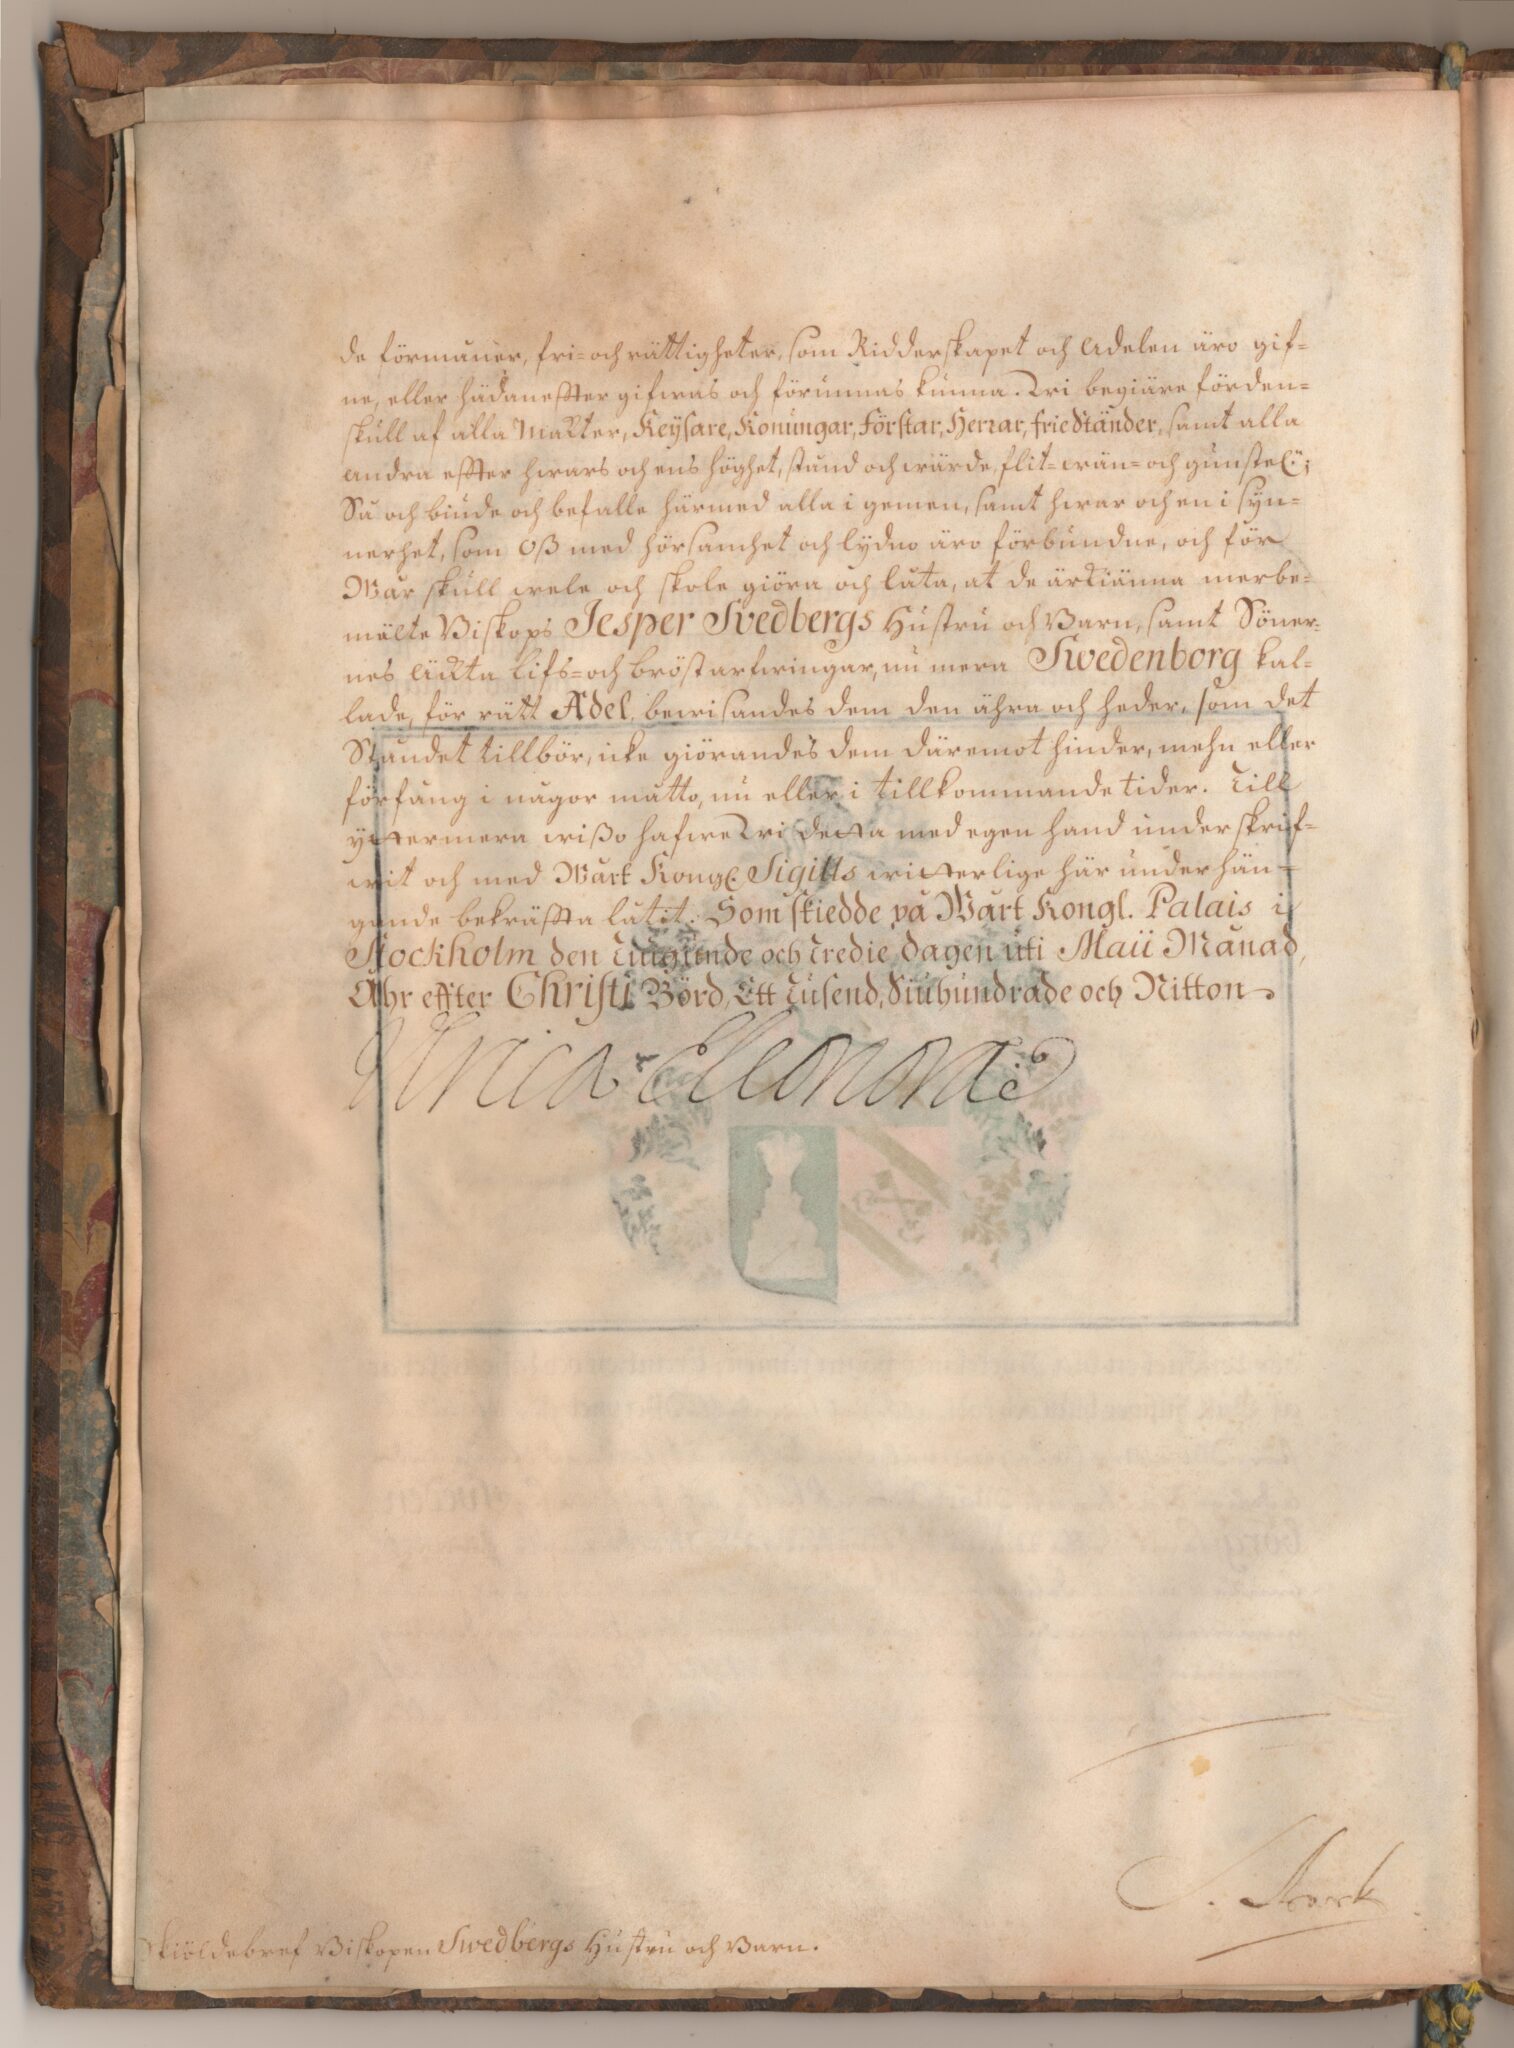 de förmåner, fri- och rättigheter, som Ridderskapet och Adelen äro gif-
ne, eller hädaneffter gifwas och förunnas kunna. Wi begiäre förden-
skull af alla Mackter, Keysare, Konungar, Förstar, Herrar, friedständer, samt alla
andra effter hwars och ens höghet, stånd och wärde, flit- wän- och gunstel:
Så och biude och befalle härmed alla i gemen, samt hwar och en i syn-
nerhet, som Oß med hörsamhet och lydno äro förbundne, och för
Wår skull wele och skole giöra och låta, at de ärkiänna merbe-
mälte Biskops Jesper Svedbergs Hustru och Barn, samt Söner-
nes äckta lifs- och bröstarfwingar, nu mera Swedenborg kal-
lade, för rätt Adel, bewisandes dem den ähra och heder, som det
Ståndet tillbör, icke giörandes dem däremot hinder, mehn eller
förfång i någor måtto, nu eller i tillkommande tider. Till
yttermera wißo hafwe Wi detta med egen hand underskrif-
wit och med Wårt Kongl. Sigills witterlige här underhän-
gande bekräffta låtit. Som skiedde på Wårt Kongl. Palais i
Stockholm den Tiugunde och Tredie dagen uti Maii Månad,
Åhr effter Christi Börd, Ett Tusend, Siuhundrade och Nitton.
Ulrica Eleonora
Skiöldebref Biskopen Swedbergs Hustru och Barn.